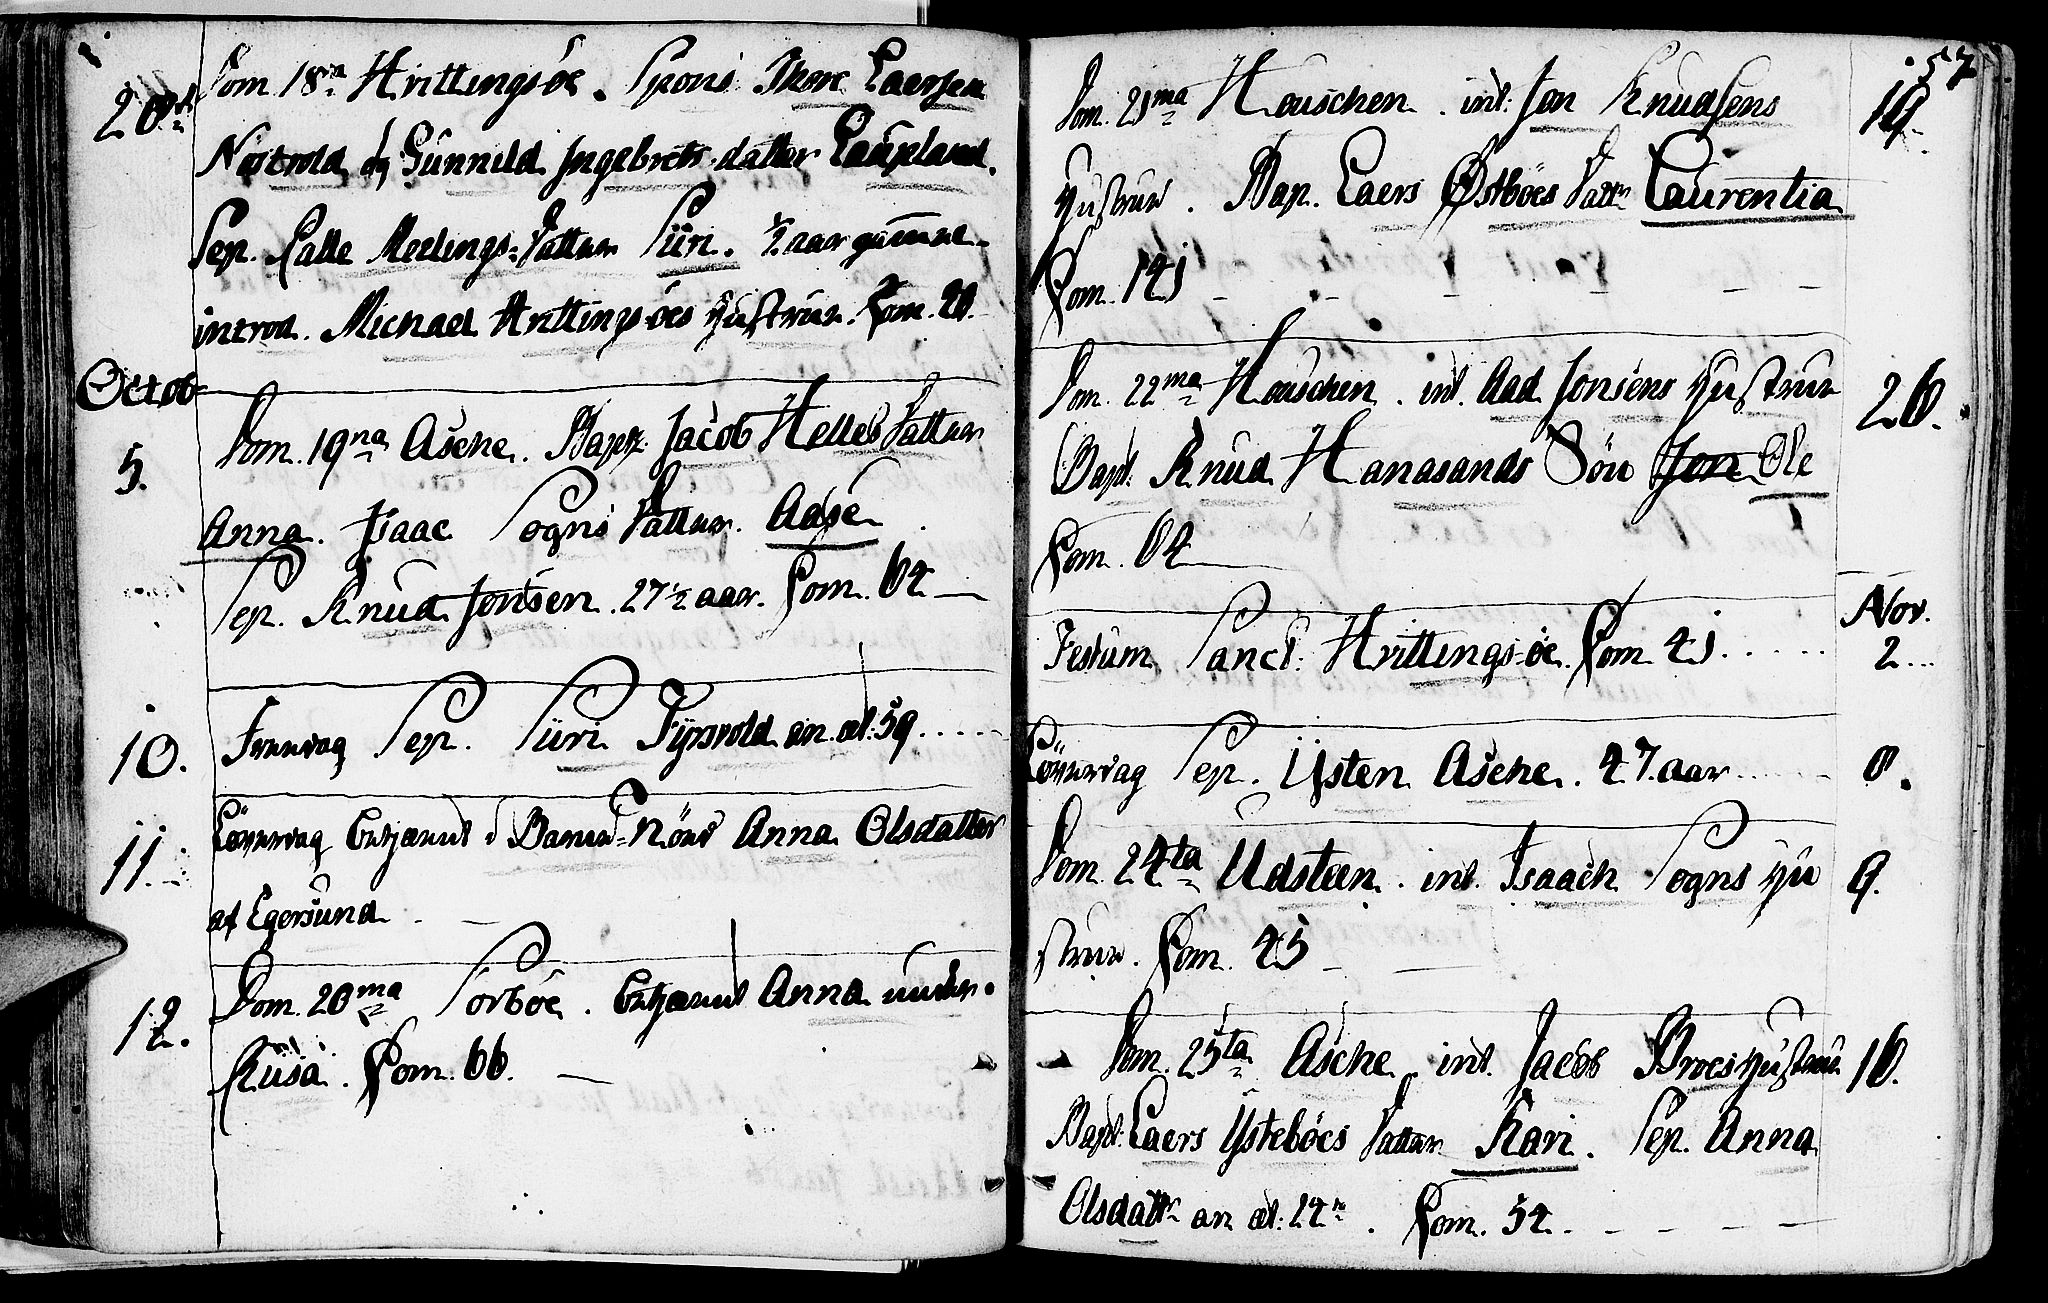 28. Dom 18.a Hvittingsöe. Spons. Thore Laersen
Nordvold og Gunnild Ingebrets datter Laupland.
Sep. Kalle Meelings Datter Siiri. ½ aar gammel.
introd. Michael Hvittingsöes Hustrue. Com. 48.
Octob
5. Dom. 19na Aske. Bapt. Jacob Helles Datter
Anna. Isaac Sogns Datter. Aase
Sep. Knud Jonsen. 27½ aar. Com. 64
10. Fredag Sep. Siiri Fysvold an. æt: 59.....
11. Löverdag Bekjænt i Barns-Nöd Anna Olsdatter
af Egersund
12. Dom. 20ma Sörböe. Anna
Com. 66.
57
Dom. 21ma Hauschen. int: Jon Knudsens 19.
Hustrue. Bap. Laers Östböes Datter Laurentia
Com. 141
Dom. 22ma Hauschen. int. Aad Jonsens Hustrue 26.
Bapt. Knud Hanasands Sön Jon Ole
Com. 64
Nov.
Festum Sanct: Hvittingsöe. Com 41..... 2...
Löverdag Sep. Ÿsten Aske. 47. aar...... 8.
Dom. 24ta Udsteen. int. Isaach Sogns Hu 9.
strue. Com. 45
Dom. 25ta Aske. int. Jacob Broes Hustrue 16.
Bapt. Laers Ÿsteböes Datter Kari. Sep. Anna
Olsdattr an æt: 24. Com. 54.